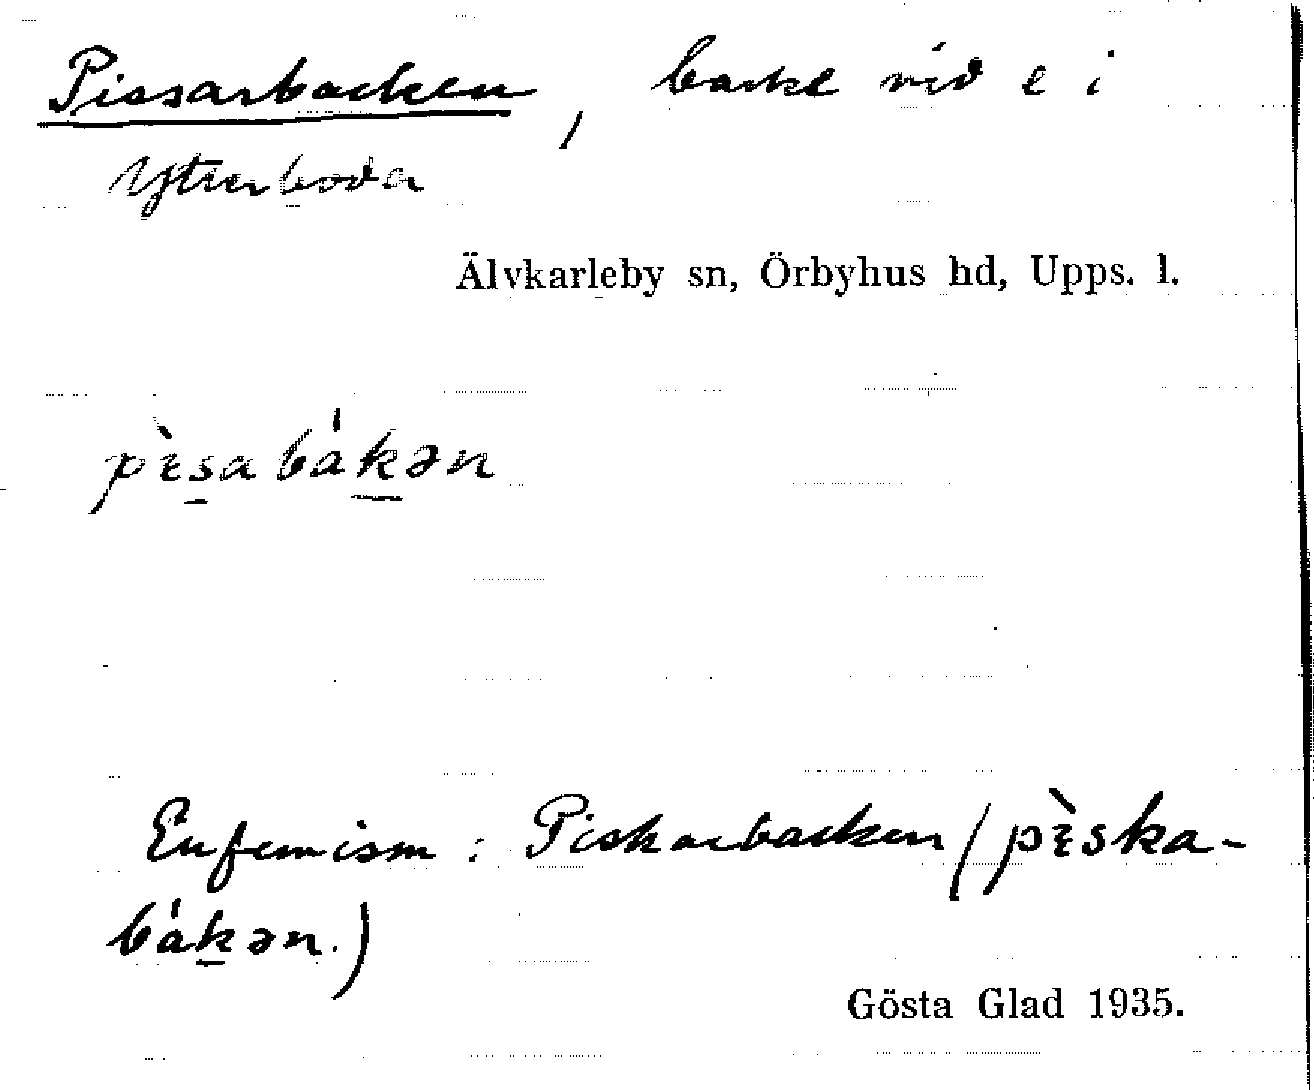 Pissarbacken, backe vid e i
Ytterboda
Älvkarleby sn, Örbyhus hd, Upps. l.
pɪ̀s̲a bák̲ən
Eufemism: Piskarbacken (pɪ̀ska-
bák̲ən.)
Gösta Glad 1935.